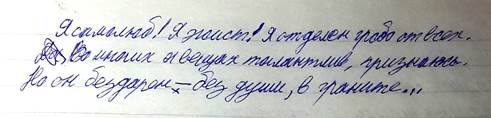 Я самолюб! Я эгоист! Я отделен гробо от всех.
Во многих я вещах талантлив, признаюсь.
Но он бездарен – без души, в граните...